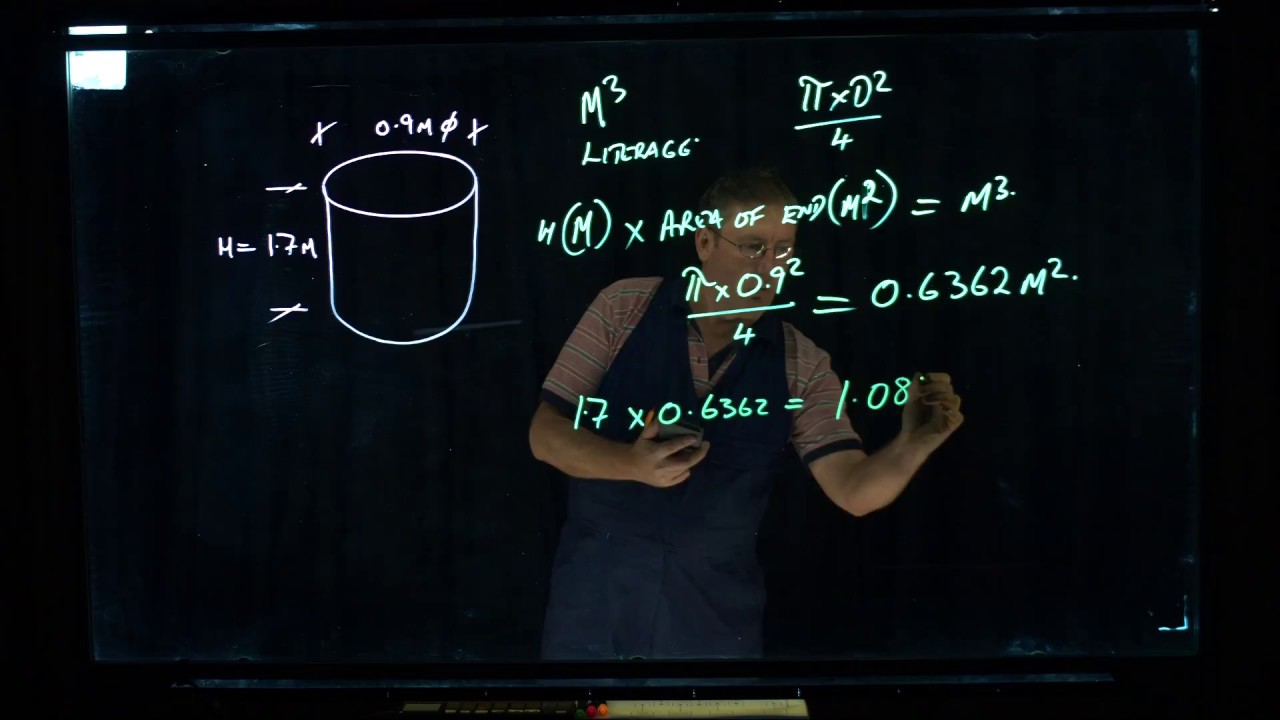 0.9M ϕ
H= 1.7M
M³
LITERAGE
π×D²
4
H(M) × AREA OF END(M²) = M³.
π×0.9²
4
= 0.6362M².
1.7 × 0.6362 = 1.08